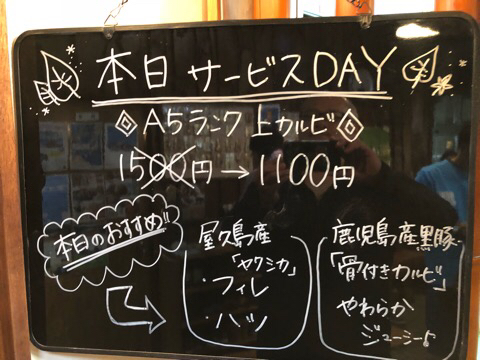 本日 サービスDAY
A5ランク 上カルビ
1500円→1100円
本日のおすすめ!!
屋久島産
「ヤクシカ」
・フィレ
・ハツ
鹿児島産黒豚
「骨付きカルビ」
やわらか
ジューシー♪